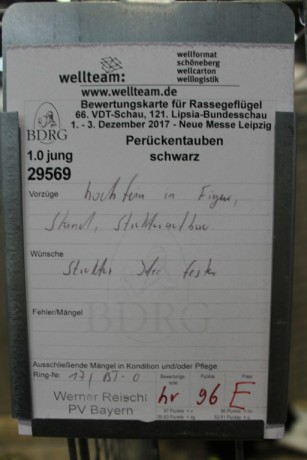 wellteam:
wellformat
schöneberg
wellcarton
welllogistik
www.wellteam.de
Bewertungskarte für Rassegeflügel
66. VDT-Schau, 121. Lipsia-Bundesschau
1. - 3. Dezember 2017 - Neue Messe Leipzig
BDRG
Perückentauben
schwarz
1.0 jung
29569
Vorzüge
hochfein in Figur,
Stand,
Wünsche
Struktur fester
BDRG
Fehler/Mängel
Ausschließende Mängel in Kondition und/oder Pflege
Ring-Nr.
Werner Reischl
PV Bayern
Bewertungs-
note
hv
Punkte
96
Preis
E